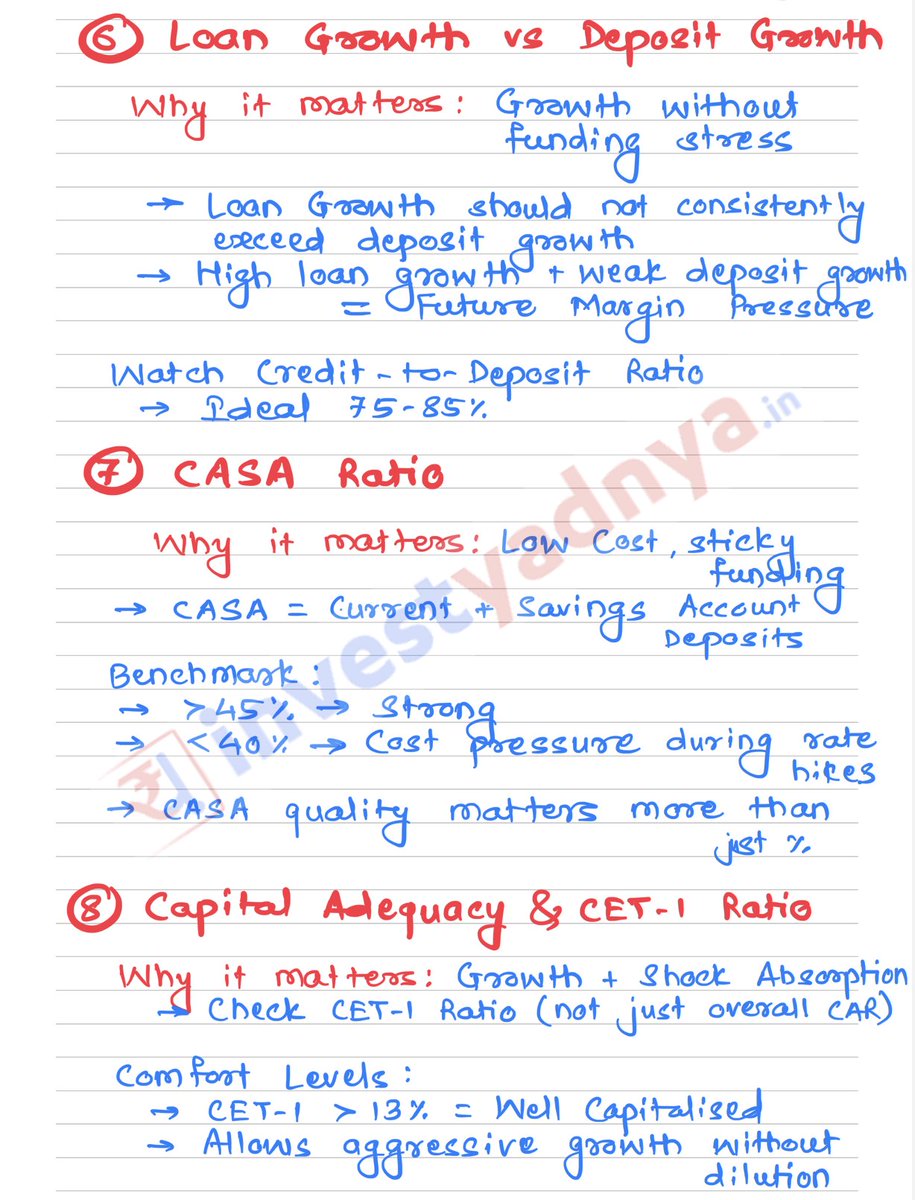 6 Loan Growth vs Deposit Growth
Why it matters: Growth without
funding stress
→ Loan Growth should not consistently
exceed deposit growth
→ High loan growth + weak deposit growth
= Future Margin Pressure
Watch Credit-to-Deposit Ratio
→ Ideal 75-85%
7 CASA Ratio
Why it matters: Low Cost, sticky
funding
→ CASA = Current + Savings Account
Deposits
Benchmark:
→ >45% → Strong
→ <40% → Cost pressure during rate
hikes
→ CASA quality matters more than
just %
8 Capital Adequacy & CET-1 Ratio
Why it matters: Growth + Shock Absorption
→ Check CET-1 Ratio (not just overall CAR)
Comfort Levels:
→ CET-1 > 13% = Well Capitalised
→ Allows aggressive growth without
dilution
investyadnya.in